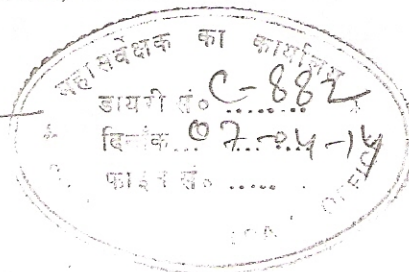 महासर्वेक्षक का कार्यालय
डायरी सं० C-882
दिनांक 07-04-14
फाइल सं० .....